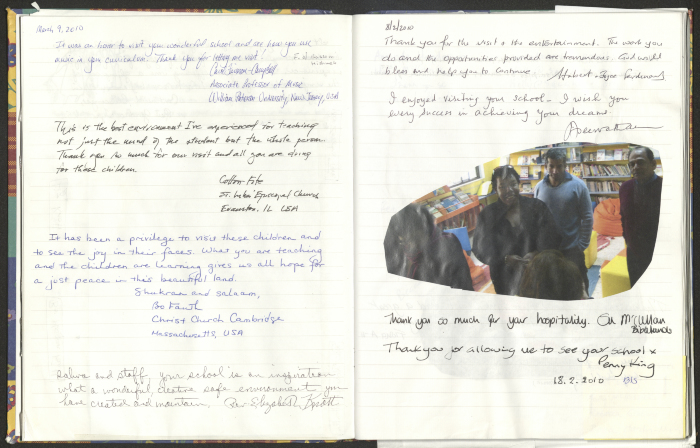 March 9, 2010
It was an honor to visit your wonderful school and see how you use
music in your curriculum. Thank you for letting me visit.
Associate Professor of Music
William Paterson University, New Jersey, USA
This is the best environment I've experienced for teaching
not just the mind of the students but the whole person.
Thank you so much for our visit and all you are doing
for these children.
Colton
St. Episcopal Church
Evanston, IL USA
It has been a privilege to visit these children and
to see the joy in their faces. What you are teaching
and the children are learning gives us all hope for
a just peace in this beautiful land.
Shukran and salaam,
Christ Church Cambridge
Massachusetts, USA
and staff, your school is an inspiration
what a wonderful creative safe environment you
have created and maintain. Rev Elizabeth
2010
Thank you for the visit & the entertainment. The work you
do and the opportunities provided are tremendous. God
bless and help you to continue.
I enjoyed visiting your school - I wish you
every success in achieving your dreams.
Thank you so much for your hospitality.
Thank you for allowing us to see your school x
Penny King
18.2.2010